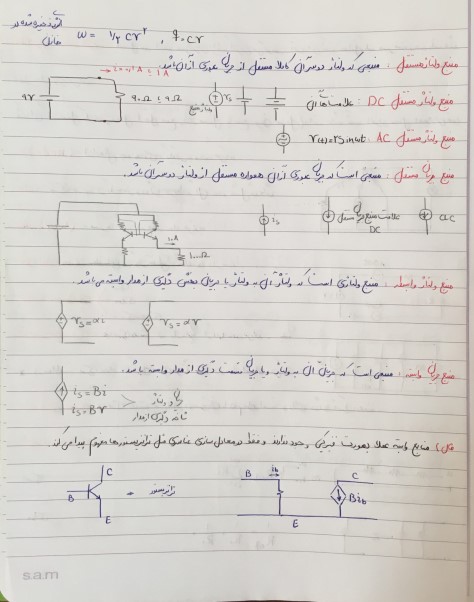 انرژی ذخیره شده در خازن W = 1/2 CV² , q = CV
منبع ولتاژ مستقل : منبعی که ولتاژ دو سر آن کاملا مستقل از جریان عبوری از آن باشد.
9V
90Ω یا 9Ω
منبع ولتاژ
Vs
منبع ولتاژ مستقل DC : علامت های آن
منبع ولتاژ مستقل AC V(t)=VSinωt
منبع جریان مستقل : منبعی است که جریان عبوری از آن همواره مستقل از ولتاژ دو سر آن باشد.
is
علامت منبع جریان مستقل DC
منبع ولتاژ وابسته : منبع ولتاژی است که ولتاژ آن به ولتاژ یا جریان بخش دیگری از مدار وابسته می باشد.
Vs = αi
Vs = αV
منبع جریان وابسته : منبعی است که جریان آن به ولتاژ و یا جریان قسمت دیگری از مدار وابسته باشد.
is = Bi
is = BV
جریان و ولتاژ
شاخه دیگری از مدار
منابع وابسته عملا بصورت فیزیکی وجود ندارند و فقط در معادل سازی عناصری مثل ترانزیستورها مفهوم پیدا می کند
B
C
E
ترانزیستور
B
ib
C
Bib
E
s.a.m